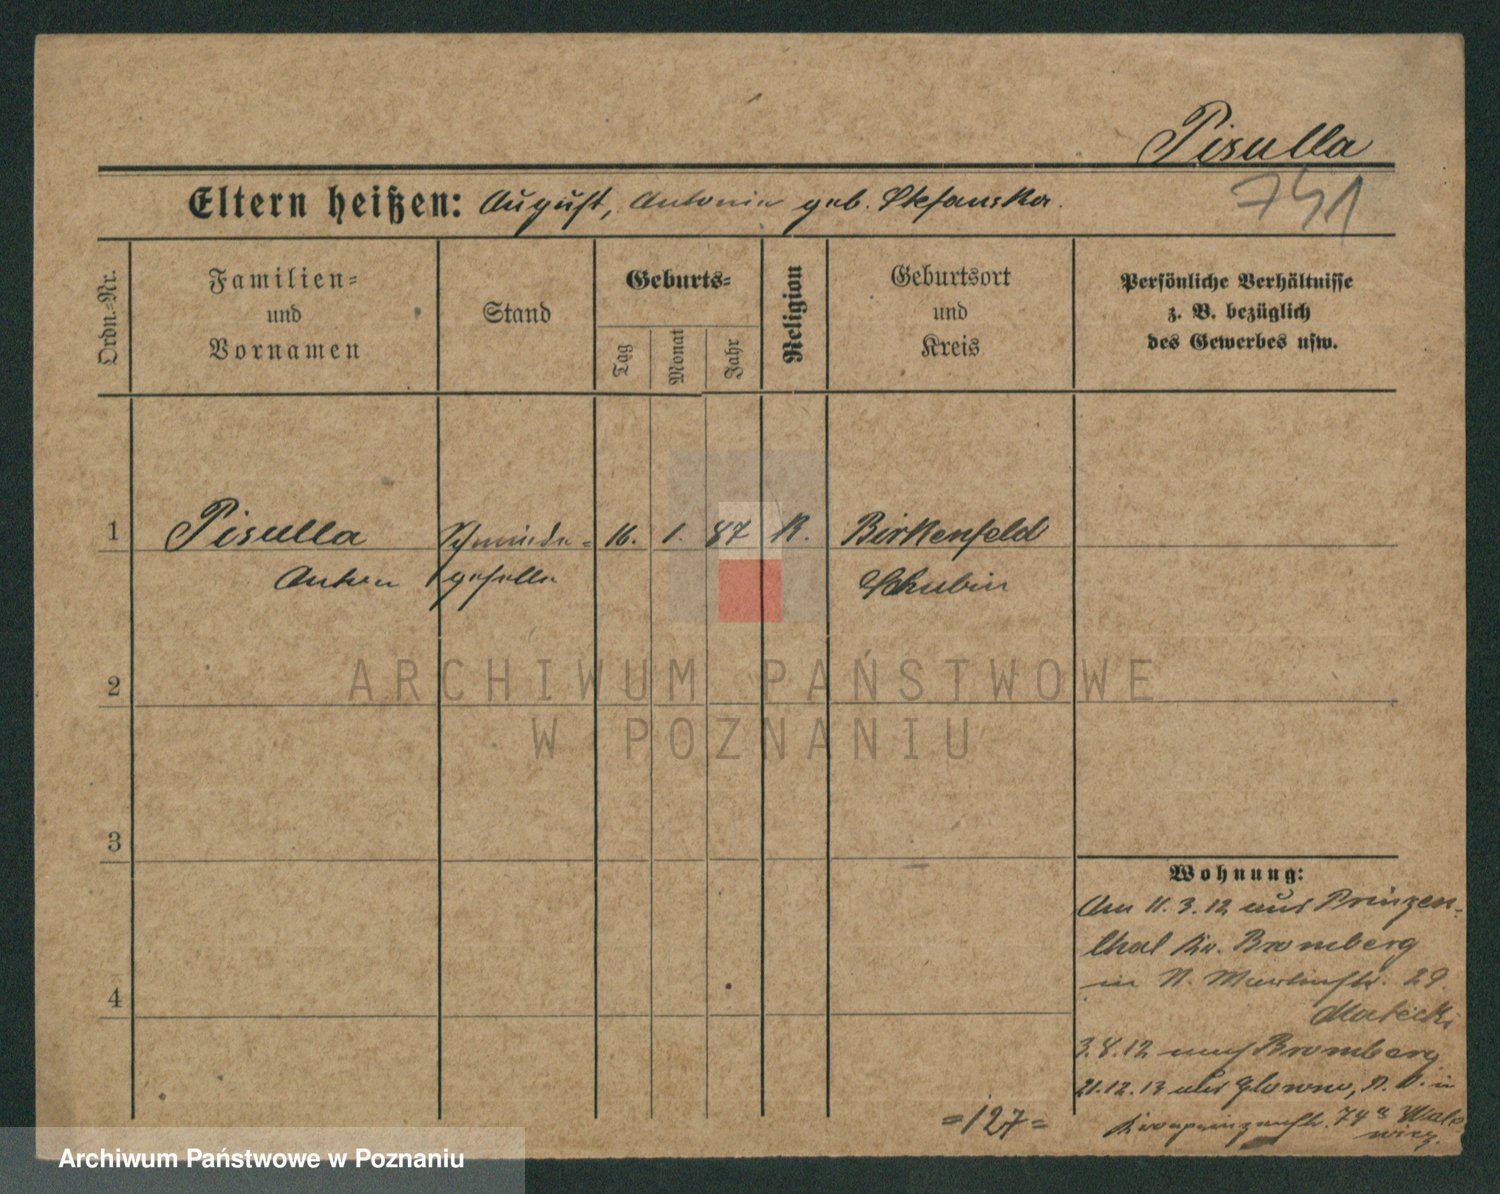 Pisulla
Eltern heißen: August, Antonia geb. Stefanska.
741
Ordn.-Nr.
Familien-
und
Vornamen
Stand
Geburts-
Tag
Monat
Jahr
Religion
Geburtsort
und
Kreis
Persönliche Verhältnisse
z. B. bezüglich
des Gewerbes usw.
1 Pisulla Schmiede- 16. 1. 87 K. Birkenfeld
Anton geselle Schubin
2
3
4
Wohnung:
Am 11.3.12 aus Prinzen-
thal Kr. Bromberg
in N. Martinstr. 29.
Matecki
3.8.12 nach Bromberg
21.12.13 aus Glowno, P. O. in
Kronprinzenstr. 74a
=127=
ARCHIWUM PAŃSTWOWE
W POZNANIU
Archiwum Państwowe w Poznaniu